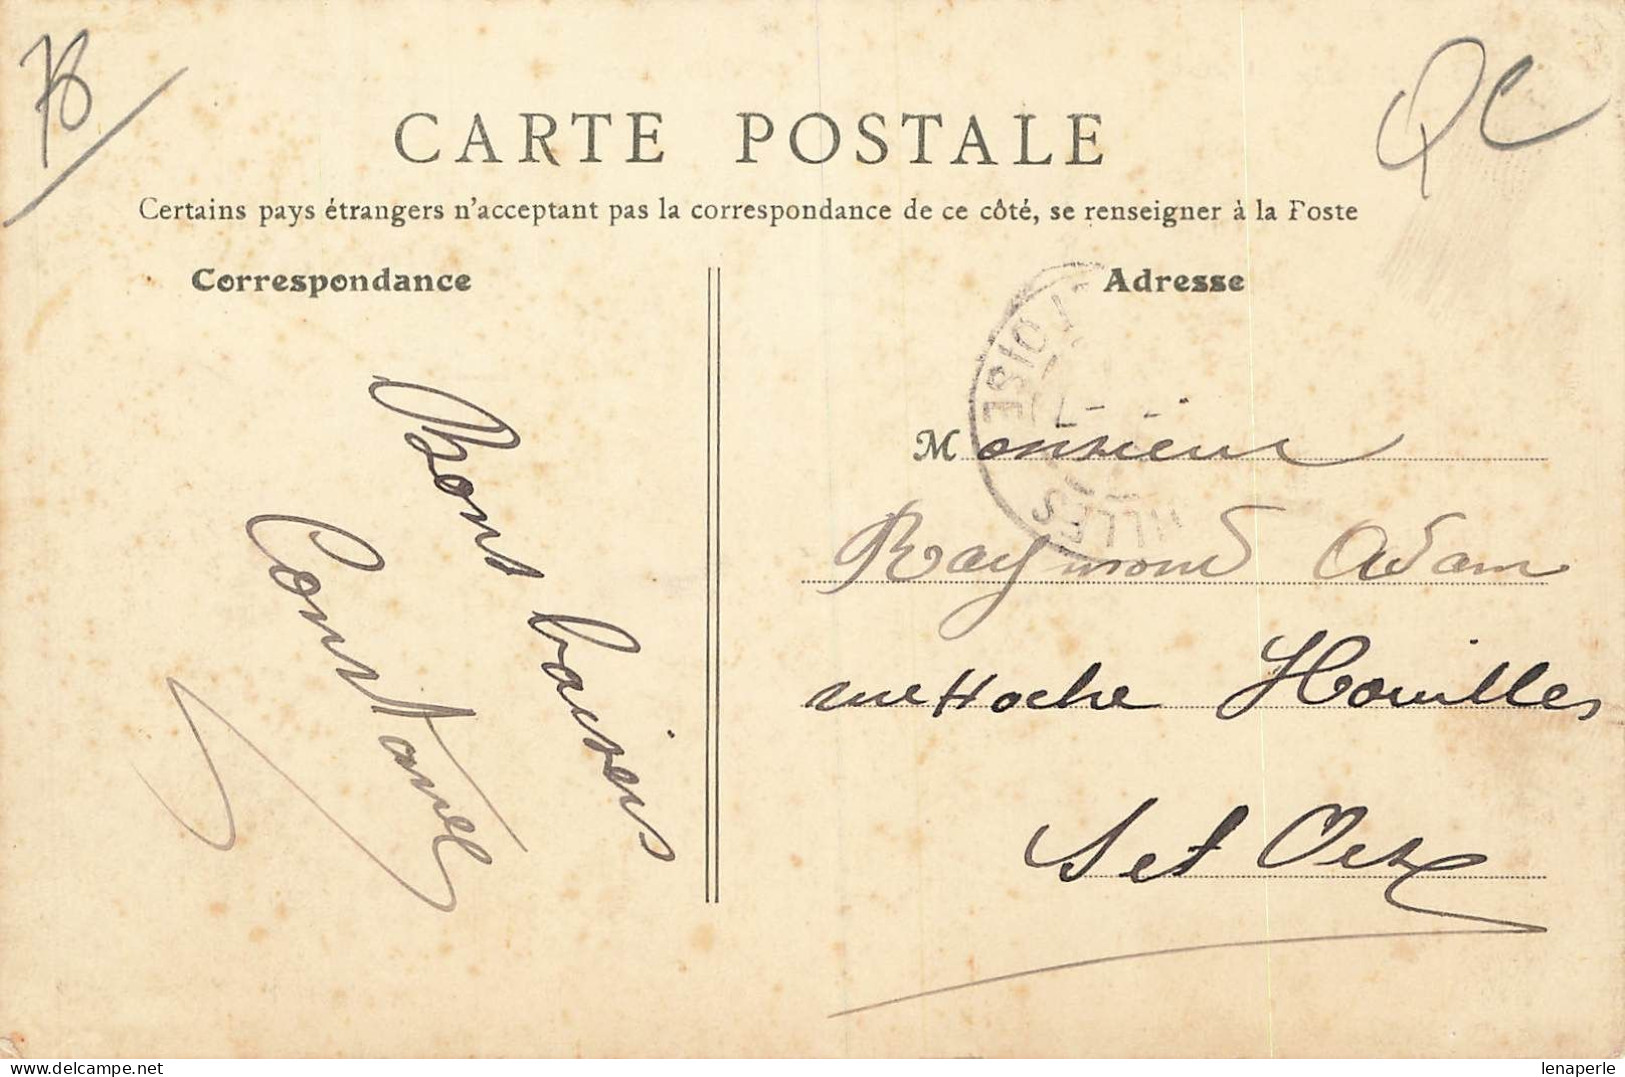 78
QC
CARTE POSTALE
Certains pays étrangers n'acceptant pas la correspondance de ce côté, se renseigner à la Poste
Correspondance
Adresse
Bons baisers
Constance
Monsieur
Raymond Adam
rue Hoche Houilles
S et Oise
OISE
ILLES
lenaperle